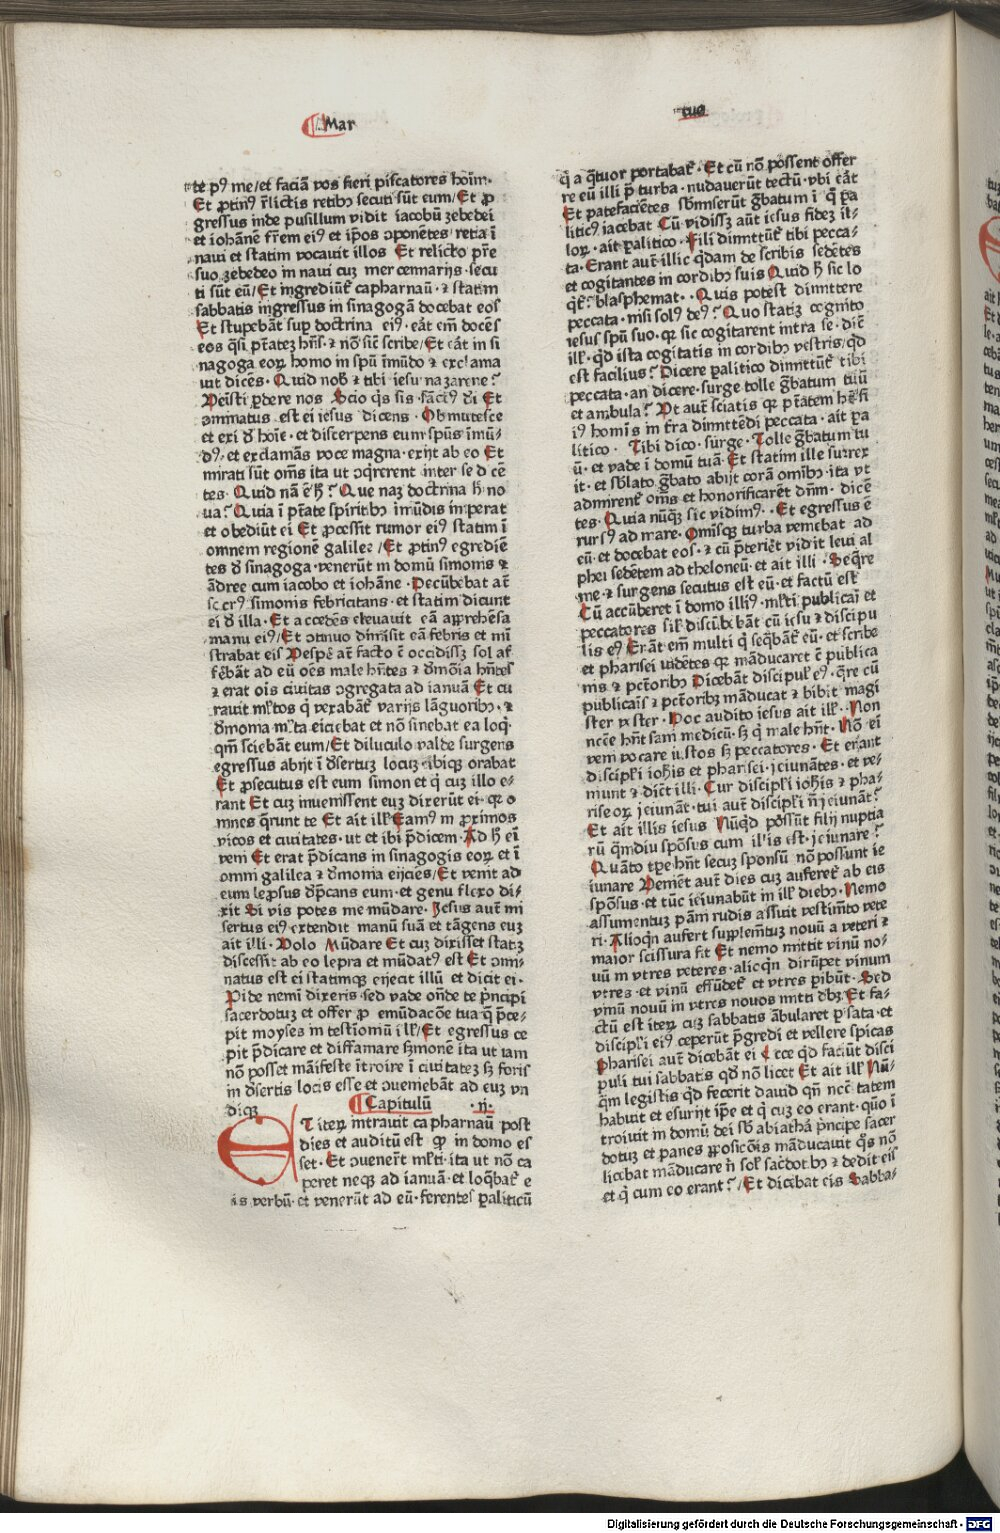 Mar
cus
te pꝰ me/et faciā vos fieri piscatores hoīm·
Et ꝓtinꝰ r̄lictis retibꝫ secuti sūt eum/Et ꝓ
gressus inde pusillum vidit iacobū zebedei
et iohānē fr̄em eiꝰ et ip̄os ↄponētes retia ī
naui et statim vocauit illos Et relicto pr̄e
suo zebedeo in naui cuꝫ mercennarijs·secu
ti sūt eū/Et ingrediūt̄ capharnaū·⁊ statim
sabbatis ingressus in sinagogā docebat eos
Et stupebāt suꝑ doctrina eiꝰ·eāt em̄ docēs
eos q̄si pt̄atez hn̄s·⁊ nō sic̄ scribe/Et eāt in si
nagoga eoꝝ homo in spū īmūdo ⁊ exclama
uit dicēs·Quid nob̄ ⁊ tibi iesu nazarene?
Venisti ꝑdere nos Scio q̄s sis·sāctꝰ dī Et
ↄminatus est ei iesus dicens·Obmutesce
et exi d̄ hoīe·et discerpens eum spūs īmū-
dꝰ·et exclamās voce magna·exijt ab eo Et
mirati sūt om̄s ita ut ↄq̄rerent inter se dicē
tes·Quid nā ē h̄? Que naꝫ doctrina h̄ no
ua? Quia ī pt̄ate spiritibꝫ īmūdis imperat
et obediūt ei Et ꝓcessit rumor eiꝰ statim ī
omnem regionē galilee/Et ꝓtinꝰ egrediē
tes d̄ sinagoga·venerūt in domū simonis ⁊
ādree cum iacobo et iohāne·Decūbebat at̄
socrꝰ simonis febricitans·et statim dicunt
ei d̄ illa·Et accedēs eleuauit eā apprehēsa
manu eiꝰ/Et ↄtinuo dimisit eā febris et mī
strabat eis Vespē at̄ facto c̄ occidissꝫ sol af
fēbāt ad eū oēs male hn̄tes ⁊ dm̄oīa hn̄tes
⁊ erat oīs ciuitas ↄgregata ad ianuā Et cu
rauit ml̄tos q̄ vexabāt̄ varijs lāguoribꝫ·⁊
dm̄onia ml̄ta eiciebat et nō sinebat ea loq̄·
qm̄ sciebāt eum/Et diluculo valde surgens
egressus abijt ī dsertuꝫ locuꝫ·ibiqꝫ orabat
Et ꝓsecutus est eum simon et q̄ cuꝫ illo e-
rant Et cuꝫ inuenissent euꝫ dixerūt ei·qꝛ o
mnes q̄runt te Et ait ill̄ Eamꝰ in ꝓximos
vicos et ciuitates·ut et ibi p̄dicem·Ad h̄ eī
veni Et erat p̄dicans in sinagogis eoꝝ et ī
omni galilea ⁊ dm̄onia eijciēs/Et venit ad
eum leprosus dp̄cans eum·et genu flexo di-
xit Si vis potes me mūdare·Jesus aut̄ mi
sertus eiꝰ extendit manū suā et tāgens euꝫ
ait illi·Volo Mūdare Et cuꝫ dixisset statꝫ
discessit ab eo lepra et mūdatꝰ est Et ↄmi-
natus est ei statimqꝫ eijecit illū et dicit ei·
Vide nemī dixeris·sed vade on̄de te pn̄cipi
sacerdotuꝫ et offer ꝓ emūdacōe tua q̄ p̄ce-
pit moyses in testioniū ill̄/Et egressus ce
pit p̄dicare et diffamare sꝫmonē ita ut iam
nō posset māifeste ītroire ī ciuitateꝫ sꝫ foris
in dsertis locis esse et ↄueniebāt ad euꝫ vn
diqꝫ
Capitulū ·ij·
ET iteꝝ intrauit capharnaū post
dies et auditū est qꝛ in domo es
set·Et ↄuener̄t ml̄ti·ita ut nō ca
peret neqꝫ ad ianuā·et loq̄bat̄ e
is verbū·et venerūt ad eū·ferentes ꝑaliticū
q̄ a q̄tuor portabat̄·Et cū nō possent offer
re eū illi p̄ turba·nudauerūt tectū·vbi eāt
Et patefaciētes sbm̄iserūt ḡbatum ī q̄ pa
liticꝰ iacebat Cū vidissꝫ aūt iesus fidez il-
loꝝ·ait ꝑalitico·Fili dimittūt̄ tibi pecca-
ta·Erant aut̄ illic q̄dam de scribis sedētes
et cogitantes in cordibꝫ suis Quid h̄ sic lo
q̄t̄? blasphemat··Quis potest dimittere
peccata·nisi solꝰ deꝰ? Quo statiꝫ cognito
iesus spū suo·qꝛ sic cogitarent intra se·dic̄
ill̄·qd̄ ista cogitatis in cordibꝫ vestris/qd̄
est facilius? Dicere ꝑalitico dimittūt̄ tibi
peccata·an dicere·surge tolle ḡbatum tuū
et ambula? Vt aut̄ sciatis qꝛ pt̄atem hꝫ fi
iꝰ homīs in tr̄a dimittēdi peccata·ait ꝑa
litico·Tibi dico·surge·Tolle ḡbatum tu
ū·et vade ī domū tuā·Et statim ille surrex
it·et sb̄lato ḡbato abijt corā omībꝫ·ita vt
admirent̄ om̄s et honorificarēt dn̄m·dicē
tes·Quia nūqꝫ sic vidimꝰ··Et egressus ē
rursꝰ ad mare·Omīsqꝫ turba veniebat ad
eū·et docebat eos·⁊ cū p̄teriēt vidit leui al
phei sedētem ad theloneū·et ait illi·Seq̄re
me·⁊ surgens secutus est eū·et factū est
Cū accūberet ī domo illiꝰ·ml̄ti publicaī et
peccatores sil̄ discūbebāt cū iesu ⁊ discipu
lis eꝰ Erāt em̄ multi q̄ seq̄bāt̄ eū·et scribe
et pharisei uidētes qꝛ māducaret c̄ publica
nis ⁊ pctōribꝫ Dicebāt discipul̄ eꝰ·q̄re cū
publicaīs ⁊ pctōribꝫ māducat ⁊ bibit magi
ster vester·Hoc audito iesus ait ill̄··Non
ncc̄e hn̄t sani medicū·sꝫ q̄ male hn̄t·Nō eī
veni vocare iustos sꝫ peccatores·Et erant
discipl̄i ioh̄is et pharisei·jeiunātes·et ve-
niunt ⁊ dic̄t illi·Cur discipl̄i ioh̄is ⁊ pha-
riseoꝝ jeiunāt·tui aut̄ discipl̄i n̄ jeiunāt?
Et ait illis iesus Nūqd̄ possūt filij nuptia
rū q̄mdiu spōsus cum illis est·jeiunare?
Quāto tꝑe hn̄t secuꝫ sponsū nō possunt ie
iunare Veniēt aut̄ dies cuꝫ auferet̄ ab eis
spōsus·et tūc ieiunabūt in ill̄ diebꝫ·Nemo
assumentuꝫ pāni rudis assuit vestim̄to vete
ri·Alioqn̄ aufert supplem̄tuꝫ nouū a veteri ⁊
maior scissura fit Et nemo mittit vinū no-
uū in vtres veteres·alioqn̄ dirūpet vinum
vtres·et vinū effūdet̄ et vtres ꝑibūt·Sed
vinū nouū in vtres nouos mitti dbꝫ/Et fa-
ctū est iteꝝ cuꝫ sabbatis ābularet ꝑ sata·et
discipl̄i eiꝰ ceperūt p̄gredi et vellere spicas
Pharisei aut̄ dicebāt ei Ecce qd̄ faciūt disci
puli tui sabbatis qd̄ nō licet Et ait ill̄ Nū-
q̄m legistis qd̄ fecerit dauid qn̄ ncc̄ tatem
habuit et esurijt ip̄e et q̄ cuꝫ eo erant·quō ī
troiuit in domū dei sb̄ abiathā pn̄cipe sacer
dotuꝫ et panes ꝓposicōis māducauit q̄s nō
licebat māducare n̄ sol̄ sac̄dotibꝫ ⁊ dedit eis
et q̄ cum eo erant?/Et dicebat eis Sabba-
Digitalisierung gefördert durch die Deutsche Forschungsgemeinschaft - DFG